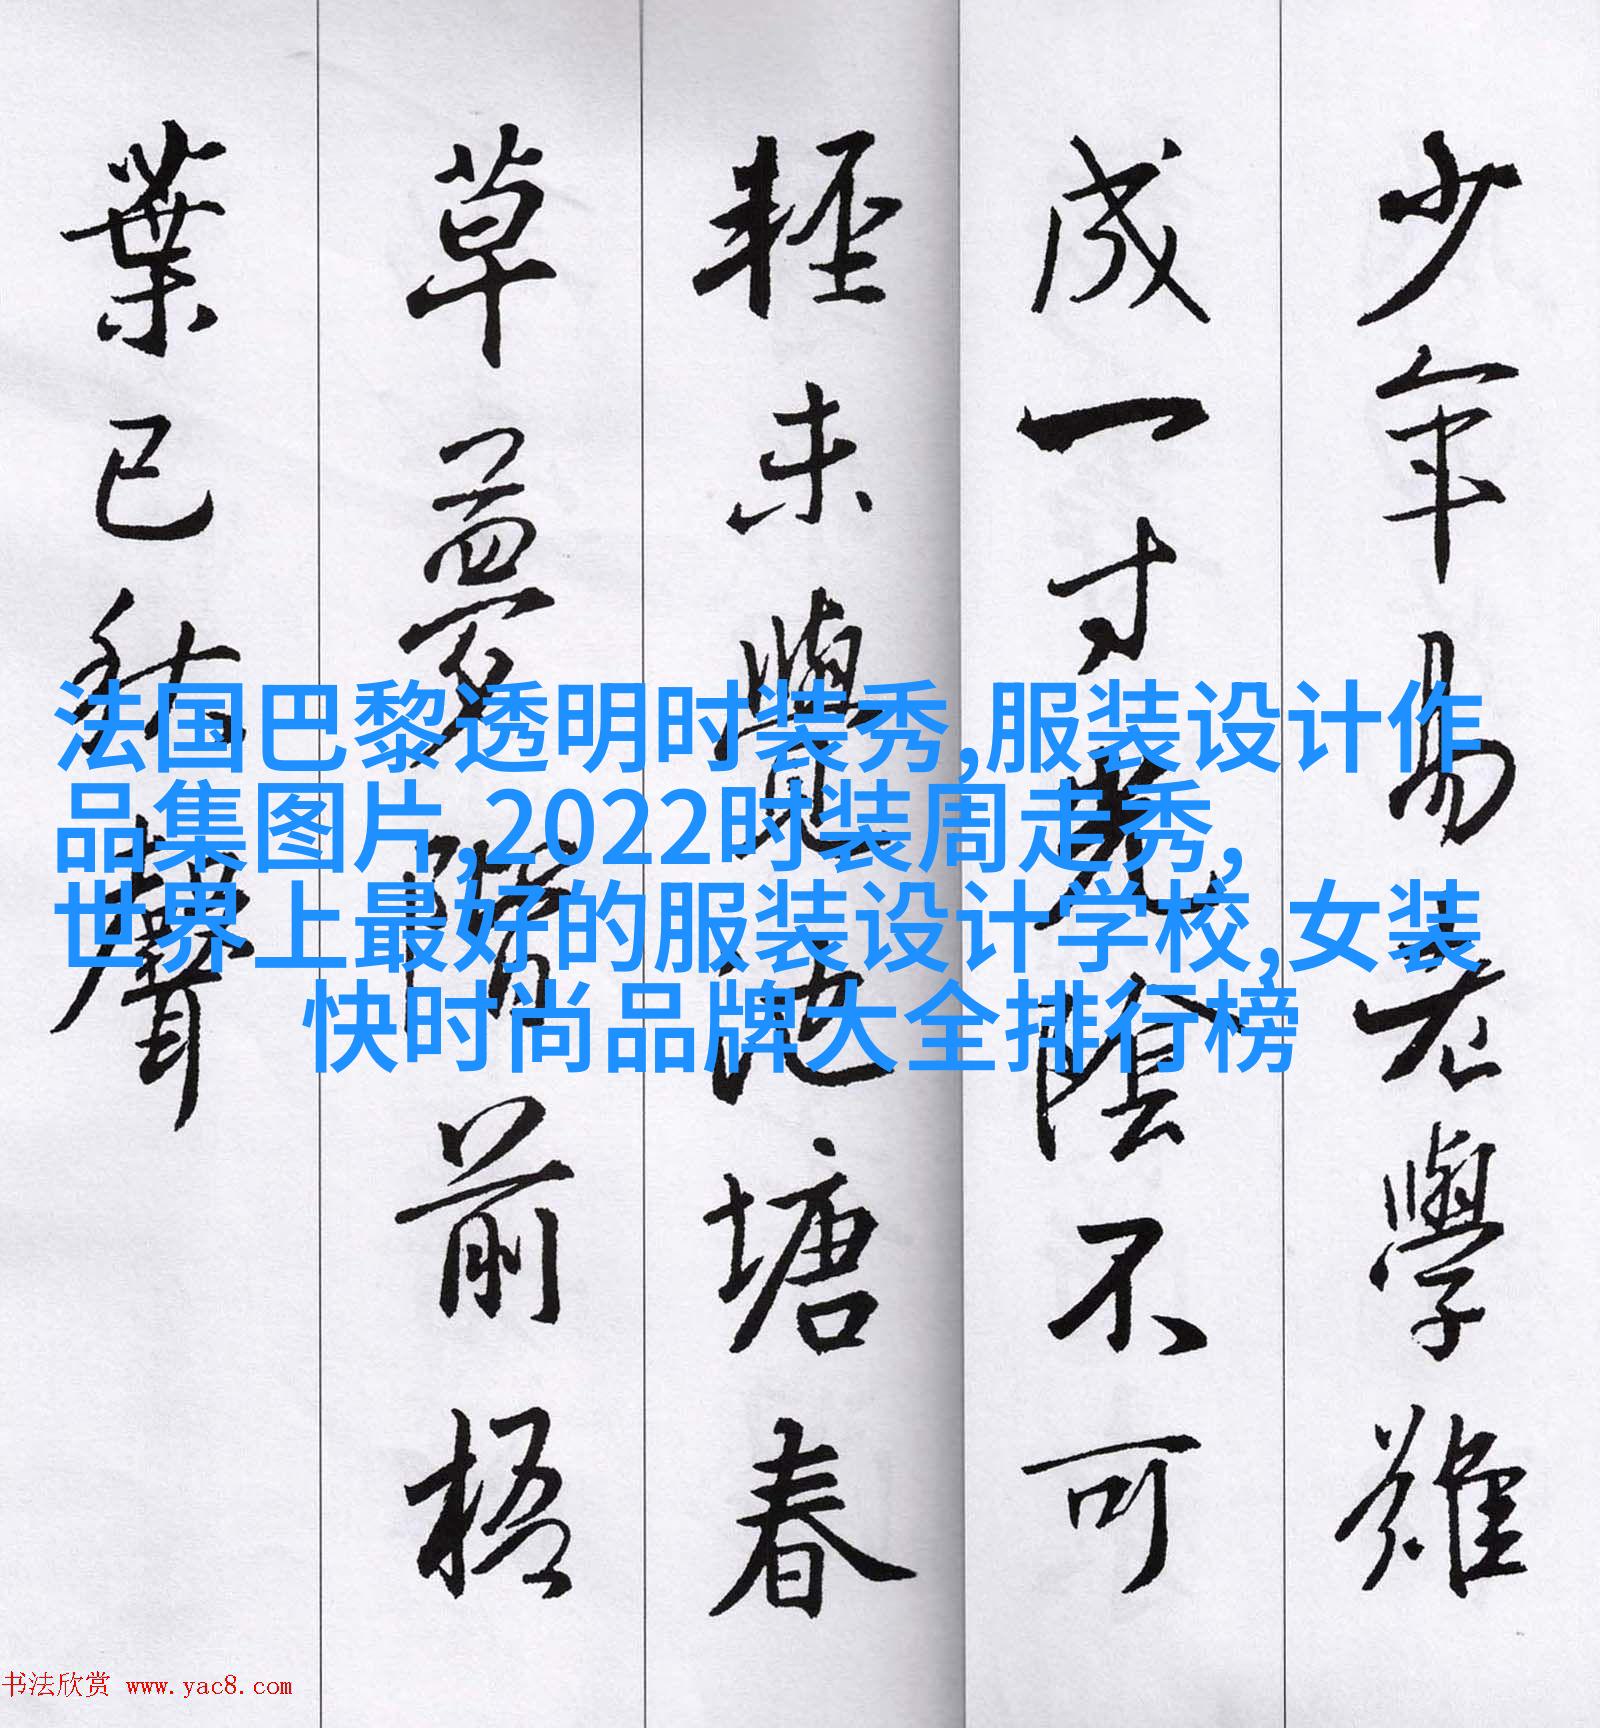 少年易老學難
成一寸光陰不可
輕未覺池塘春
草夢階前梧
葉已秋聲
法国巴黎透明时装秀,服装设计作
品集图片,2022时装周走秀,
世界上最好的服装设计学校,女装
快时尚品牌大全排行榜
书法欣赏 www.yac8.com